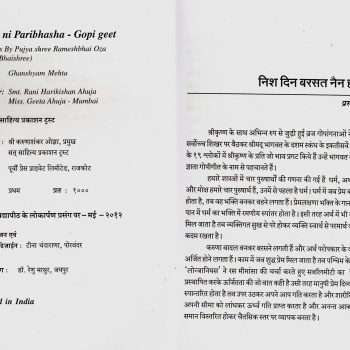 ni Paribhasha - Gopi geet
s By Pujya shree Rameshbhai Oza
Bhaishree)
: Ghanshyam Mehta
: Smt. Rani Harikishan Ahuja
Miss. Geeta Ahuja - Mumbai
साहित्य प्रकाशन ट्रस्ट
: श्री करुणाशंकर ओझा, प्रमुख
सत् साहित्य प्रकाशन ट्रस्ट
: पूर्वी प्रेस प्राइवेट लिमीटेड, राजकोट
: प्रथम प्रत : १०००
द्यापीठ के लोकार्पण प्रसंग पर - मई - २०१२
जन एवं
डिज़ाईन : टीना चंदाराणा, पोरबंदर
ग : डॉ. रेणु माथुर, जयपुर
d in India
निश दिन बरसत नैन ह
प्रस
श्रीकृष्ण के साथ अभिन्न रूप से जुडी हुई व्रज गोपांगनाओं ने
सर्वोच्च शिखर पर बैठकर श्रीमद् भागवत के दशम स्कंध के इकतीसवें
के १९ श्लोकों में श्रीकृष्ण के प्रति जो भाव प्रगट किये हैं उन्हें भागवत
ज्ञाता गोपीगीत के नाम से पहचानते हैं।
हमारे शास्त्रों में चार पुरुषार्थों की गणना की गई है धर्म, अर्थ
और मोक्ष हमारे चार पुरुषार्थ हैं, उनमें से पहला है धर्म। धर्म में जब प्रेम
होता है, तब वह भक्ति बनकर बहने लगता है। प्रेमलक्षणा भक्ति के गान
पान में धर्म का भक्ति में रमणीय रुपांतर होता है। इसी तरह अर्थ में भी
मिल जाता है तब व्यक्तिगत सुख से परे होकर व्यक्ति स्वार्थ से परमार्थ
कदम रखता है।
करुणा बादल बनकर बरसने लगती हैं और अर्थ परोपकार के
अर्जित होने लगता हैं। काम में जब शुद्ध प्रेम मिल जाता है तब पश्चिम के
'लोन्जानियस' ने रस मीमांसा की चर्चा करते हुए सबलिमीटी का
प्रस्थापित करके ऊर्जितता की जो बात कही है उसी तरह मानुषी प्रेम दिव्य
रुपान्तरित होता है तब उपर उठकर अपने आप गति करता है और शारीरि
अपनी सीमा को लांघकर ऊर्ध्व गति प्राप्त करता है और अनन्त आक
समान विस्तरित होकर चैतसिक स्तर पर व्यापक बनता है।